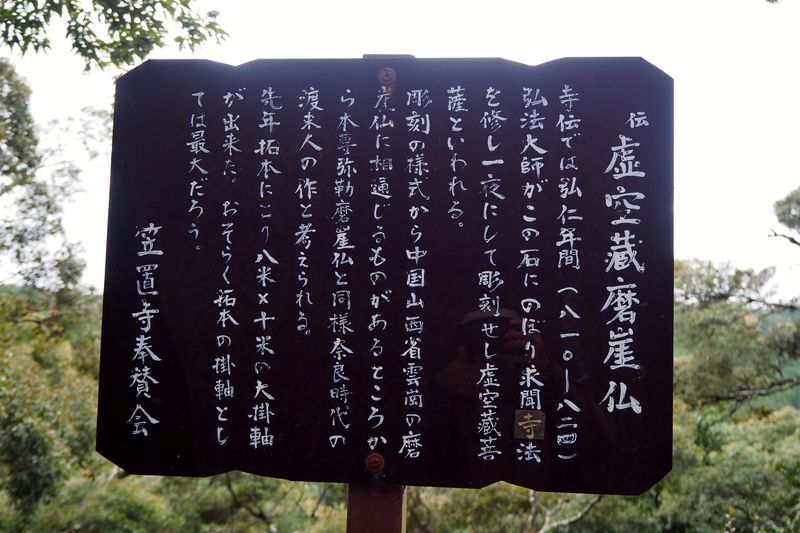 伝 虚空蔵磨崖仏
寺伝では弘仁年間(八一〇ー八二四)
弘法大師がこの石にのぼり求聞寺法
を修し一夜にして彫刻せし虚空蔵菩
薩といわれる。
彫刻の様式から中国山西省雲崗の磨
崖仏に相通じるものがあるところか
ら本尊弥勒磨崖仏と同様奈良時代の
渡来人の作と考えられる。
先年拓本にとり八米×十米の大掛軸
が出来た。おそらく拓本の掛軸とし
ては最大だろう。
笠置寺奉賛会